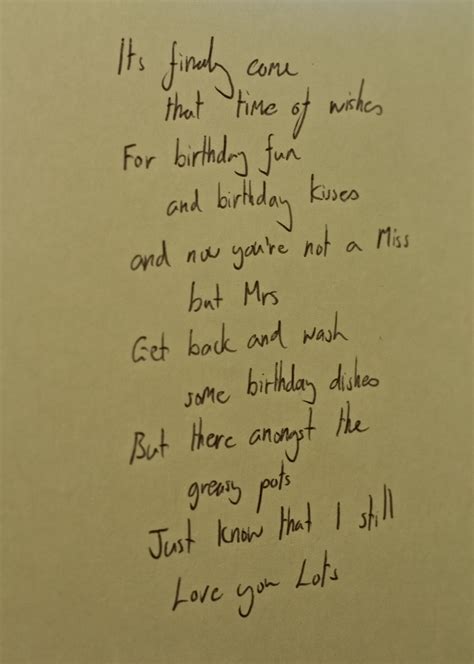 Its finaly come
that time of wishes
For birthday fun
and birthday kisses
and now you're not a Miss
but Mrs
Get back and wash
some birthday dishes
But there amongst the
greasy pots
Just know that I still
Love you Lots